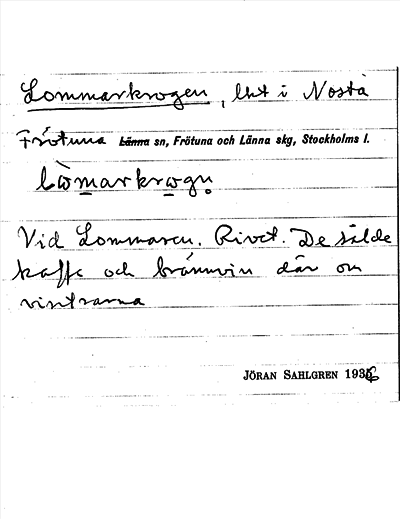 Lommarkrogen, lht i Nostå
Frötuna Länna sn, Frötuna och Länna skg, Stockholms l.
lòmarkrogn̥
Vid Lommaren. Rivet. De sålde
kaffe och brännvin där om
vintrarna
JÖRAN SAHLGREN 1936